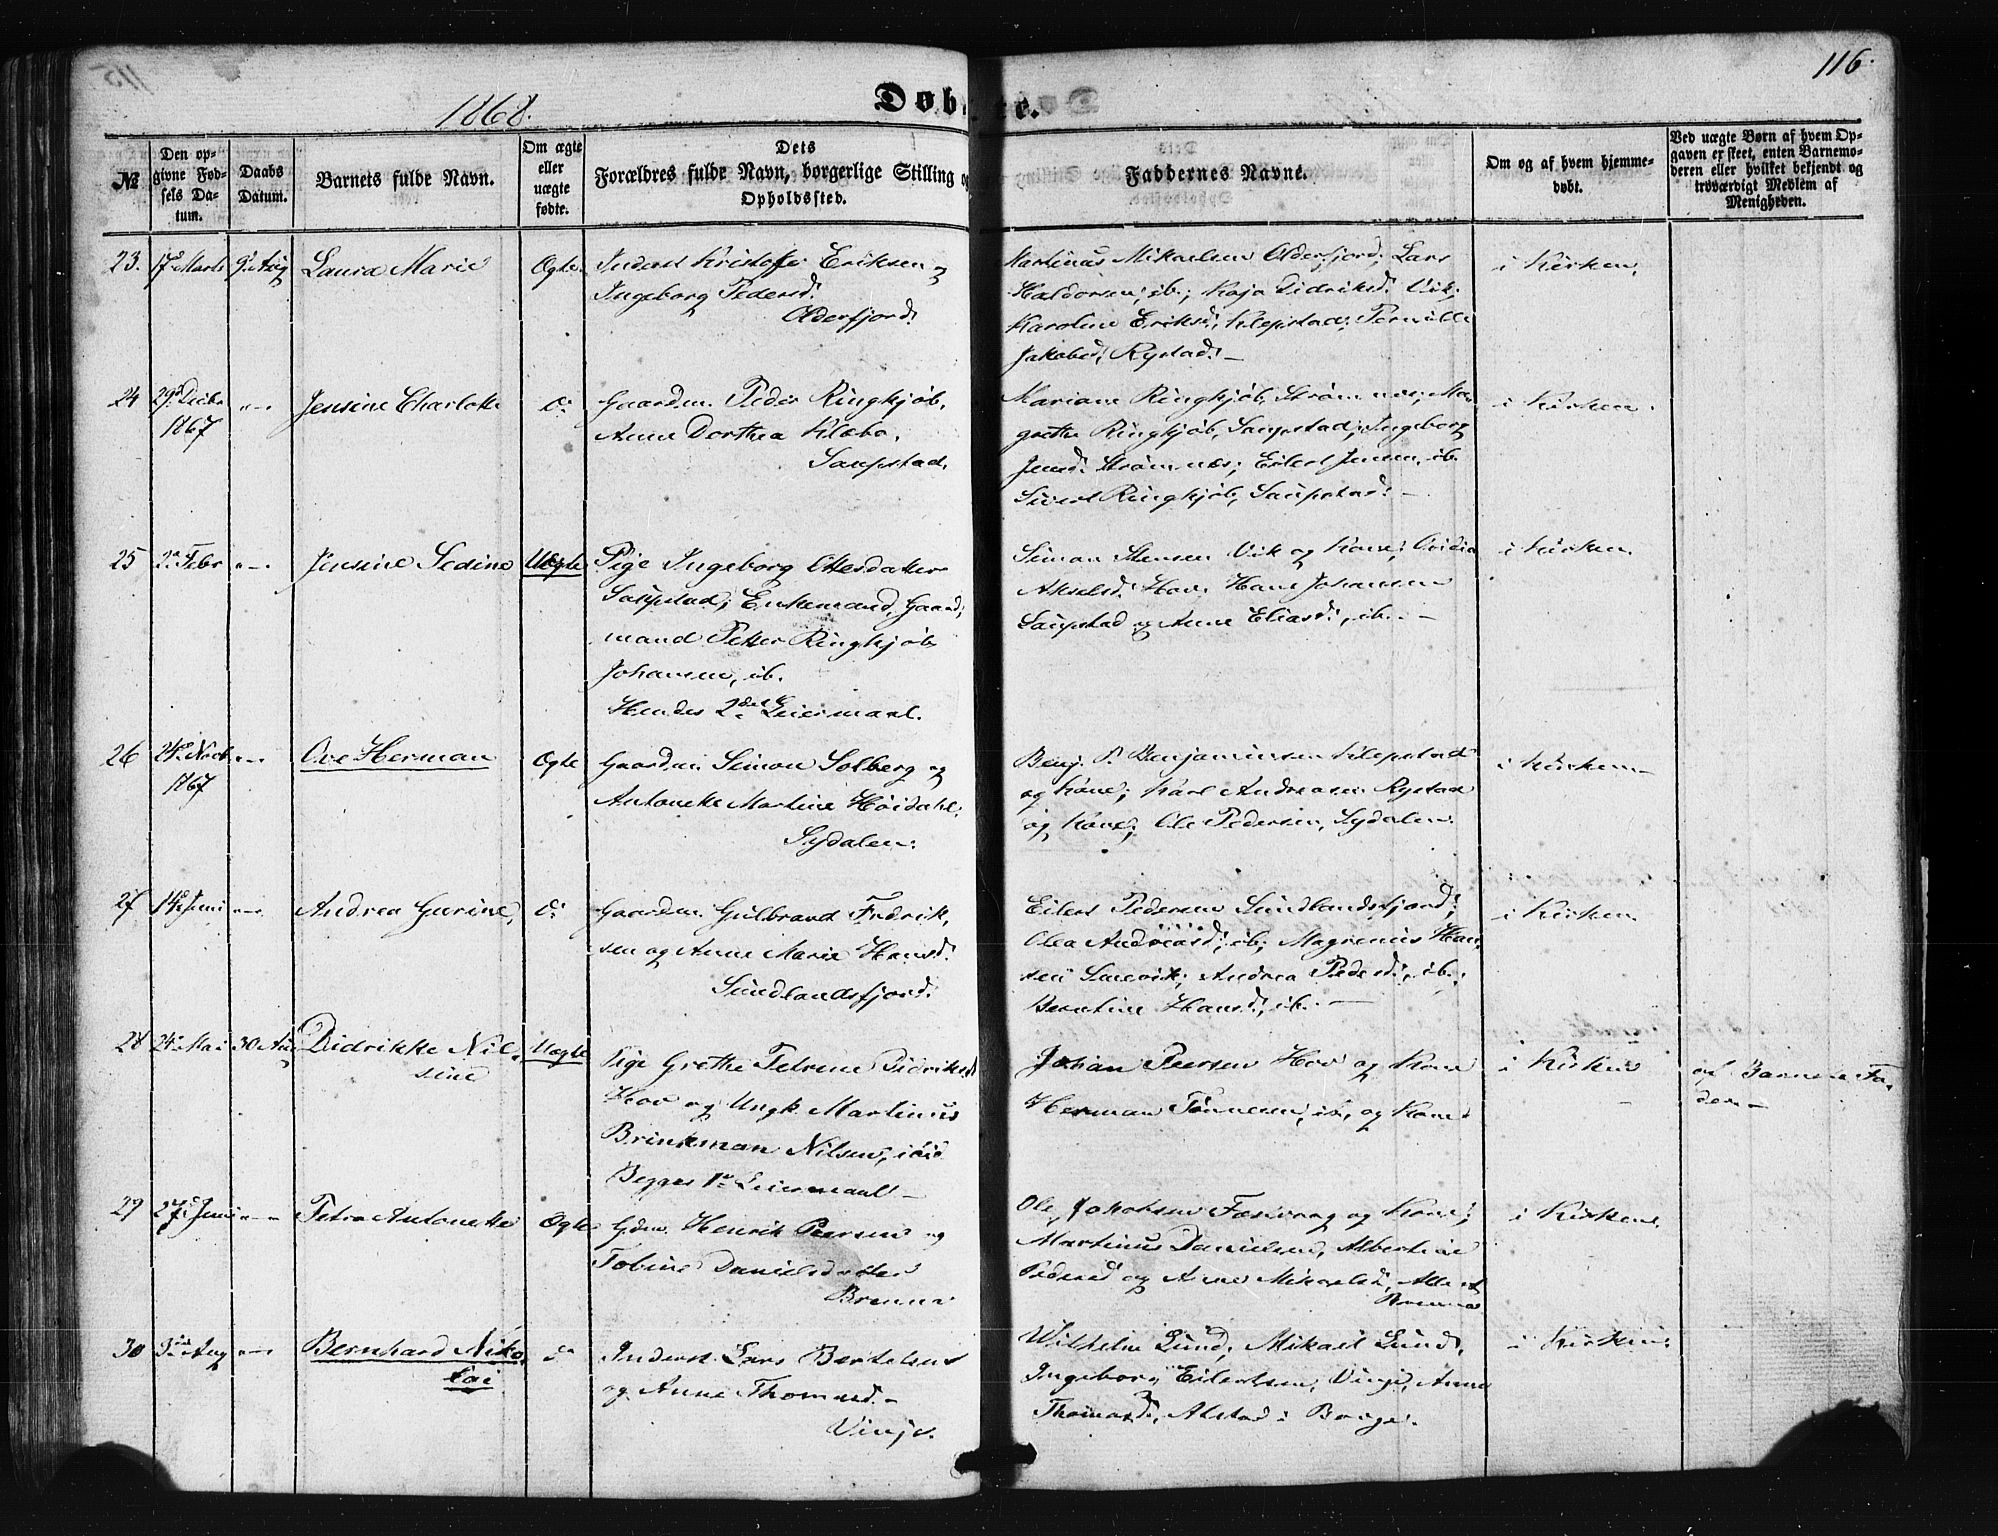 116.
1868.
Døbte.
№
Den opgivne Fødsels Datum.
Daabs Datum.
Barnets fulde Navn.
Om ægte eller uægte fødte.
Dets Forældres fulde Navn, borgerlige Stilling og Opholdssted.
Faddernes Navne.
Om og af hvem hjemmedøbt.
Ved uægte Børn af hvem Opgaven er skeet, enten Barnemoderen eller hvilket bekjendt og troværdigt Medlem af Menigheden.
23. 17de Marts 9de Aug Laura Marie Ægte Inderst Kristoffer Eriksen og
Ingeborg Pedersd.
Olderfjord.
Martinus Mikaelsen Olderfjord; Lars
Haldorsen, ib.; Kaja Didriksd. Vik;
Karoline Eriksd. Klepstad; Pernille
Jakobsd. Rystad. —
i Kirken.
24 29de Decbr „—„ Jensine Charlotte do Gaardm. Peder Ringkjøb,
1867
Anne Dorthea Klæbo,
Saupstad.
Mariane Ringkjøb, Strømnæs; Mar
grethe Ringkjøb, Saupstad; Ingeborg
Jensd. Strømnæs; Eilert Jensen, ib.
Sivert Ringkjøb, Saupstad. —
i Kirken.
25 2den Febr „—„ Jensine Sedine Uægte Pige Ingeborg Ottesdatter
Saupstad; Enkemand, Gaard,
mand Petter Ringkjøb
Johansen, ib.
Hendes 2det Leiermaal.
Simon Stensen Vik og Kone; Ovidia
Akselsd. Hov; Hans Johansen
Saupstad og Anne Eliasd., ib. —
i Kirken.
26 24de Novb „—„ Ove Herman Ægte Gaardm. Simon Solberg og
1867
Antonette Martine Høidahl;
Sydalen.
Benj. P. Benjaminsen Klepstad
og Kone; Karl Andreasen Rystad
og Kone; Ole Pedersen, Sydalen.
i Kirken —
27 14de Juni „—„ Andrea Gurine, do Gaardm. Gulbrand Fredrik,
sen og Anne Marie Hansd.
Sundlandsfjord.
Eilert Pedersen Sundlandsfjord;
Olea Andreasd., ib; Magrenius Han,
sen ; Andrea Pedersd., ib.;
Berntine Hansd., ib. —
i Kirken
28 24de Mai 30 Aug Didrikke Nil,
sine
Uægte Pige Grethe Petrine Didriksd
Hov og Ungk Martinus
Brinkman Nilsen, ibid
Begges 1ste Leiermaal —
Johan Peersen Hov og Kone
Herman Tønnesen, ib, og Kone
i Kirken
af Barnets Fa,
der —
29 27de Juni „—„ Petra Antonette Ægte Gdm. Henrik Peersen og
Tobine Danielsdatter
Brenna
Ole Jakobsen og Kone;
Martinus Danielsen, Albertine
Pedersd og Anne Mikaelsd, Alle af
Brenna
i Kirken.
30 3die Aug „—„ Bernhard Niko,
lai
do Inderst Lars Bertelsen
og Anne Thomasd. —
Vinje.
Wilhelm Lund, Mikael Lund,
Ingeborg Eilertsen, Vinje, Anne
Thomasd., Alstad i Borge.
i Kirken.